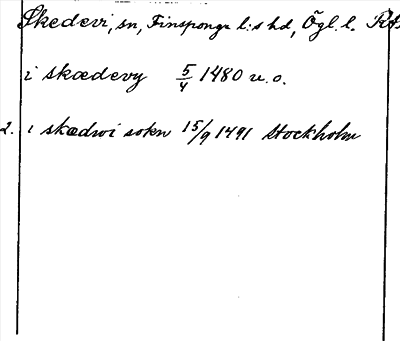 Skedevi, sn, Finspånga l:s hd, Ögl. l.
i skædevy 5/4 1480 u.o.
2. i skædwi sokn 15/9 1491 Stockholm